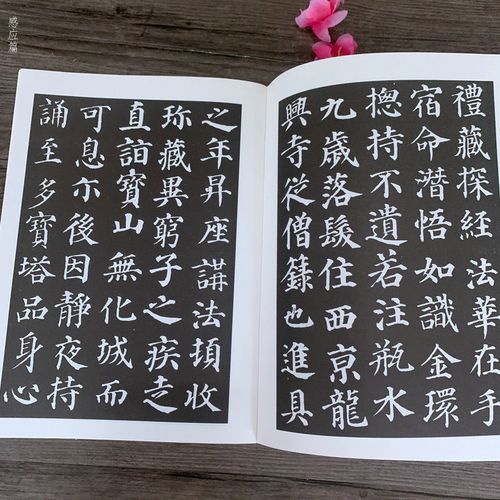 感应篇
禮藏探經法華在手
宿命潛悟如識金環
揔持不遺若注瓶水
九歲落髮住西京龍
興寺從僧籙也進具
之年昇座講法頓收
珎藏異窮子之疾走
直詣寶山無化城而
可息尒後因靜夜持
誦至多寶塔品身心